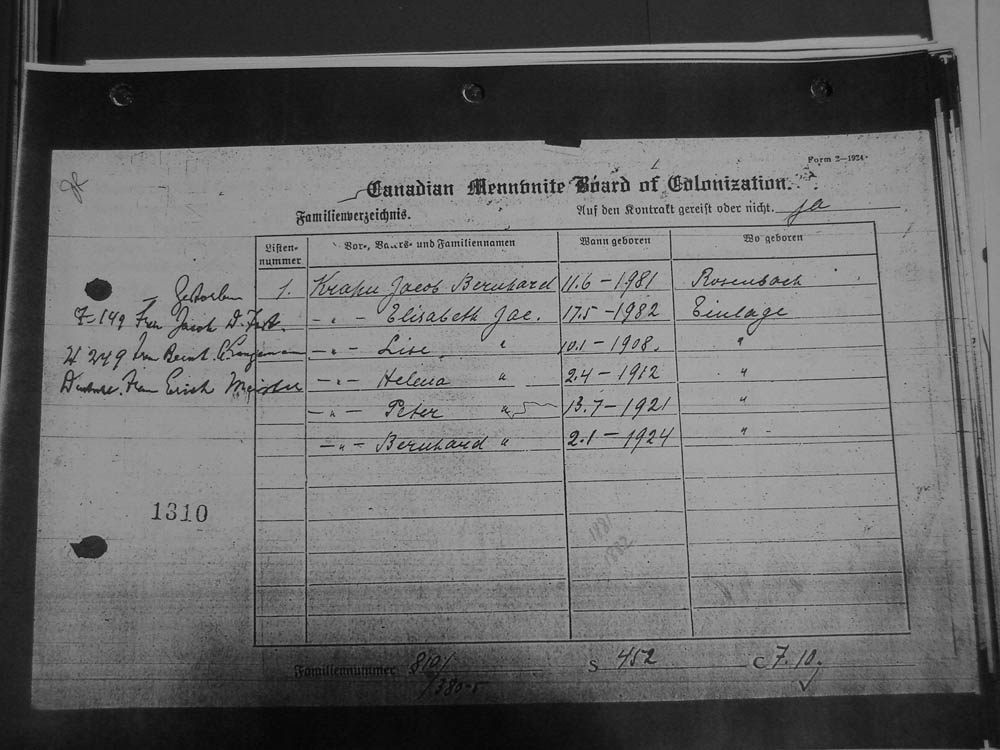 Form 2—1924
Canadian Mennonite Board of Colonization.
Familienverzeichnis.
Auf den Kontrakt gereist oder nicht. ja
Listen-nummer Vor-, Vaters- und Familiennamen Wann geboren Wo geboren
Gestorben 1. Krahn Jacob Bernhard 11.6 – 1981 Rosenbach
F-149 Frau Jacob D. – " – Elisabeth Jac. 17.5 – 1982 Einlage
249 Frau – " – Lise " 10.1 – 1908. "
Frau Erich Meister – " – Helena " 2.4 – 1912 "
– " – Peter " 13.7 – 1921 "
– " – Bernhard " 2.1 – 1924 "
1310
Familiennummer S 452 C 7.10.
1380-5